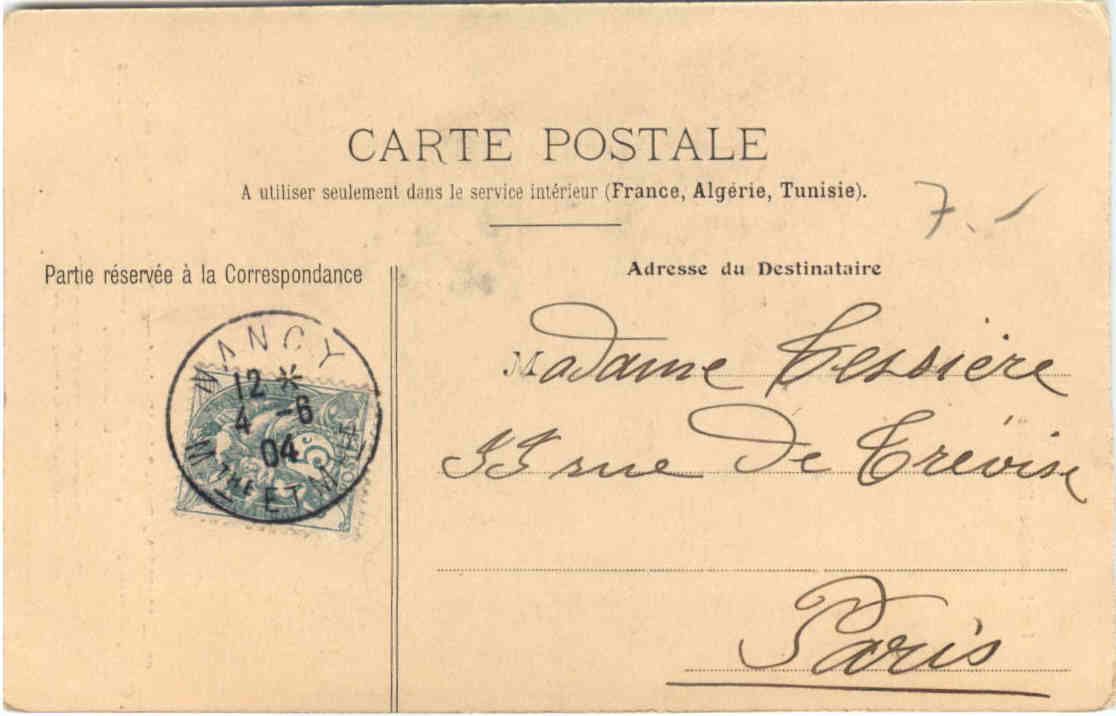 CARTE POSTALE
A utiliser seulement dans le service intérieur (France, Algérie, Tunisie).
7.-
Partie réservée à la Correspondance
Adresse du Destinataire
NANCY
12 *
4 -6
04
MTHE ET M
POSTES
Madame Tessière
55 rue De Trévise
Paris